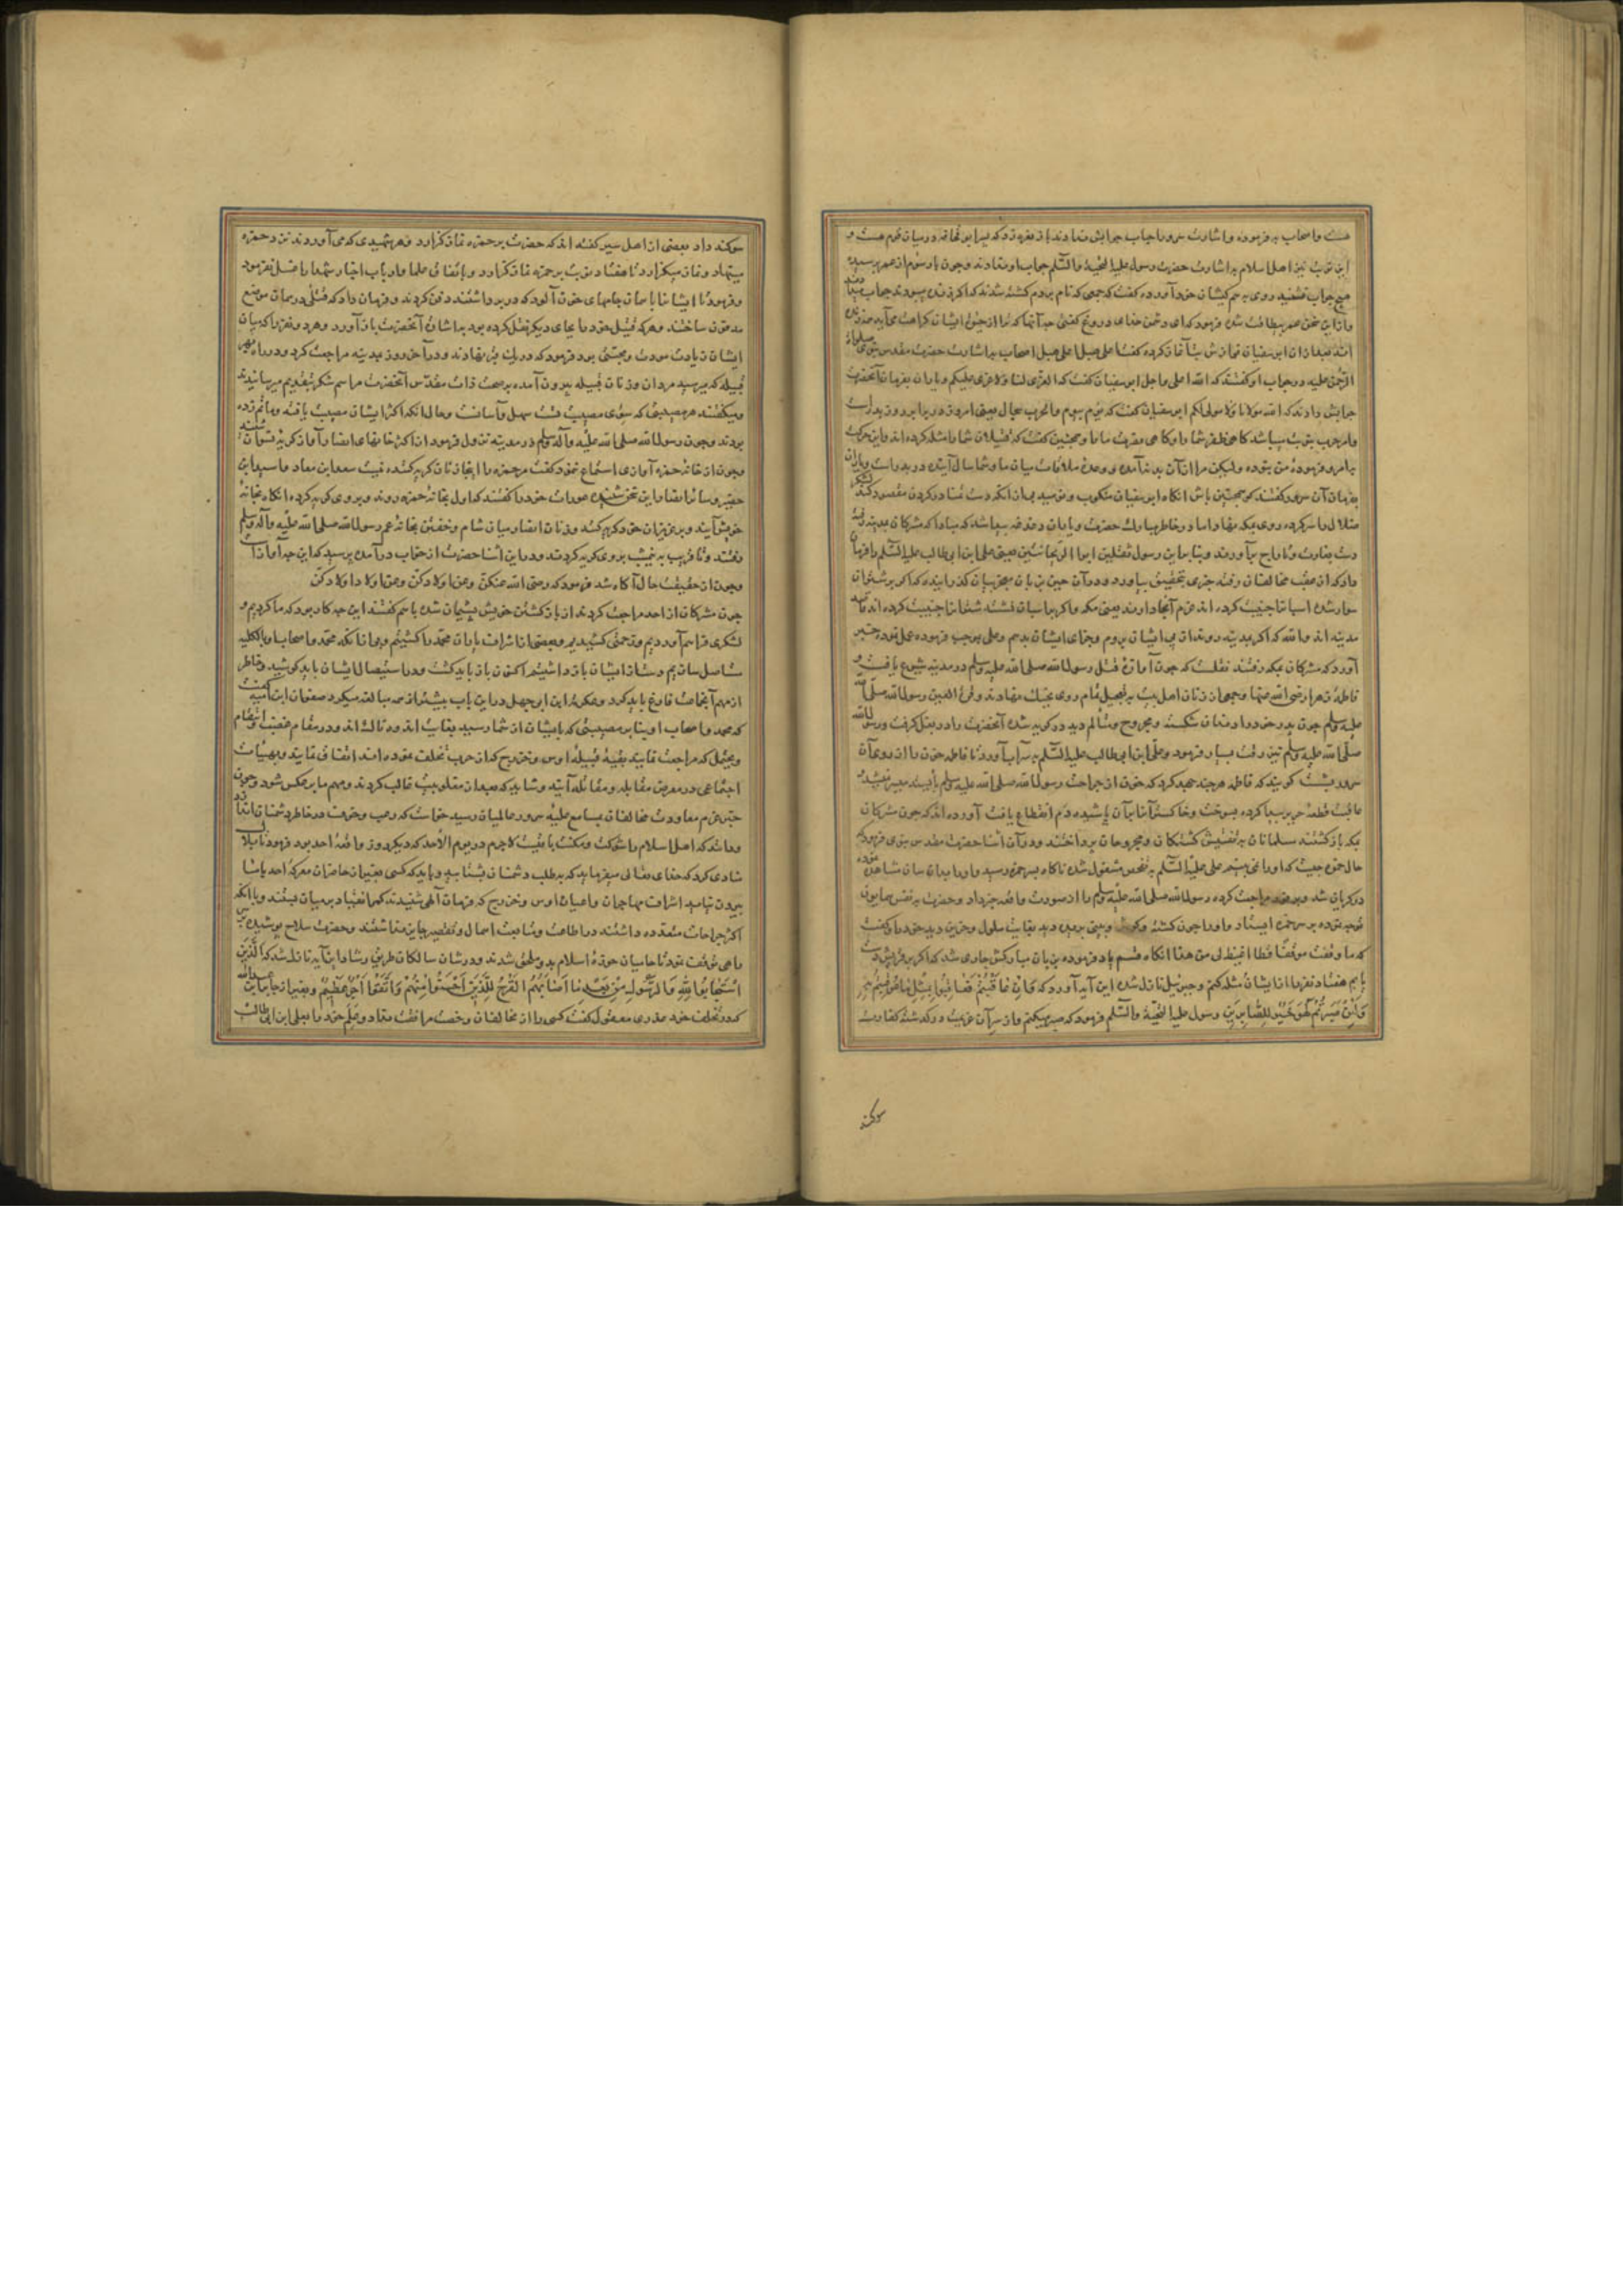 هست واصحاب بفرموده واشارت سرور احباب جوابش ندادند باز نعره زد که پسر ابو قحافه در میان قوم هست و
این نوبت نیز اهل اسلام باشارت حضرت رسول علیه التحیة والسلم جواب او ندادند وچون بار سوم از عمر پرسید
هیچ جواب نشنید روی به هم کیشان خود آورده گفت که جمعی که نام بردم کشته شدند که اکر زنده میبودند جواب
واز این سخن عمر بیطاقت شده فرمود که ای دشمن خدای دروغ گفتی
بعد از ان ابو سفیان آغاز کرده گفت اعلی هبل اعلی هبل اصحاب باشارت حضرت مقدس نبوی صلوات
الرحمن علیه در جواب او گفتند که الله اعلی واجل ابو سفیان گفت که العزی لنا ولا عزی علیکم ویاران بفرمان آنحضرت
جوابش دادند که الله مولانا ولا مولی لکم ابو سفیان گفت که یوم بیوم والحرب سجال یعنی امروز در برابر روز بدرست
وامر حرب بنوبت میباشد کاهی ظفر شما را و کاهی نصرت ما را وهمچنین گفت که قتیلان شما را مثله کرده اند واین حرکت
بامر وفرموده من نبوده ولیکن مرا از آن بد نیامد و وعده ملاقات میان ما وشما سال آینده در بدر است ویاران
بفرمان آن سرور گفتند که همچنین باش انکاه ابو سفیان
روی بمکه نهاد اما در خاطر مبارک حضرت ویاران دغدغه پیدا شد که مبادا که مشرکان بمدینه رفته
دست بغارت وتاراج برآورند وبنابراین رسول ثقلین ابو الریحانتین یعنی علی ابن ابی طالب علیه السلم را فرمان
داد که از عقب مخالفان رفته خبری بتحقیق بیاورد ودر آن حین بر زبان معجز بیان گذرانید که اکر بر شتران
سوار شده اسبان را جنیبت کرده اند عزم آنجا دارند یعنی مکه واکر بر اسبان نشسته شتران را جنیبت کرده اند قاصد
مدینه اند والله که اکر بمدینه روند از پی ایشان بروم وجزای ایشان بدهم وعلی بموجب فرموده عمل نموده خبر
آورد که مشرکان بمکه رفتند نقلست که چون آوازه قتل رسول الله صلی الله علیه وسلم در مدینه شیوع یافت
فاطمه زهرا رضی الله عنها وجمعی از زنان اهل بیت بتعجیل تمام روی بجنک نهادند وقرة العین رسول الله صلی الله
علیه وسلم چون پدر خود را دندان شکسته ومجروح ومتألم دید در کریه شده آنحضرت را در بغل کرفت ورسول الله
صلی الله علیه وسلم نیز رقت بسیار فرمود وعلی ابن ابی طالب علیه السلم بسپر آب آورد تا فاطمه خون را از روی آن
سرور بشست کویند که فاطمه هر چند جهد کرد که خون از جراحت رسول الله صلی الله علیه وسلم بازایستد میسر نمیشد
عاقبت قطعه حریر پیدا کرده بسوخت وخاکستر آنرا بر آن پاشیده دم انقطاع یافت آورده اند که چون مشرکان
بمکه بازکشتند مسلمانان بتفتیش کشتکان ومجروحان پرداختند ودر آن اثنا حضرت مقدس نبوی فرمود که
حال حمزه چیست که او را نمی بینم علی علیه السلم بتفحص مشغول شده ناکاه بسر حمزه رسید واو را بدان سان مشاهده نموده
در کریان شد وبرفور مراجعت کرده رسول الله صلی الله علیه وسلم را از صورت واقعه خبر داد وحضرت بنفس همایون
توجه نموده بر سر حمزه ایستاد واو را چون کشته وکوش وبینی بریده دید بغایت ملول وحزین وبعد گفت
که ما وقفت موقفا قط اغیظ لی من هذا انکاه قسم یاد فرموده بر زبان مبارکش جاری شد که اکر بر قریش دست
یابم هفتاد نفر را از ایشان مثله کنم وجبرئیل نازل شده این آیه آورد که وان عاقبتم فعاقبوا بمثل ما عوقبتم به
ولئن صبرتم لهو خیر للصابرین رسول علیه التحیة والسلم فرمود که صبر میکنم واز سر آن عزیمت در کذشته کفارت
سوکند
سوکند داد بعضی از اهل سیر گفته اند که حضرت بر حمزه نماز کزارد وهر شهیدی که می آوردند نزد حمزه
مینهاد ونماز میکزارد تا هفتاد نوبت بر حمزه نماز کزارد وباتفاق علما وارباب اخبار شهدا را غسل نفرمود
وفرمود تا ایشان را با همان جامهای خون آلود که در بر داشتند دفن کردند وفرمان داد که قتلی در همان موضع
مدفون ساختند وهر که قتیل خود را بجای دیکر نقل کرده بود باشارت آنحضرت باز آورد وهر دو نفر را که میان
ایشان زیادت مودت ومحبتی بود فرمود که در یک قبر نهادند ودر آخر روز بمدینه مراجعت کرد ودر راه بهر
قبیله که میرسید مردان وزنان قبیله بیرون آمده بر صحت ذات مقدس آنحضرت مراسم شکر بتقدیم میرسانیدند
ومیکفتند هر مصیبتی که سوی مصیبت تست سهل وآسانست وحال آنکه اکثر ایشان مصیبت یافته وماتم زده
بودند وچون رسول الله صلی الله علیه وآله وسلم در مدینه نزول فرمود از اکثر خانهای انصار آواز کریه شنود
وچون از خانه حمزه آوازی استماع ننمود گفت مر حمزه را اینجا زنان کریه کننده نیست سعد ابن معاذ واسید ابن
حضیر وسائر انصار این سخن شنیده عورات خود را گفتند که اول بخانه حمزه روند وبر وی کریه کرده انکاه بخانه
خویش آیند وبر عزیزان خود کریه کنند وزنان انصار میان شام وخفتن بخانه عم رسول الله صلی الله علیه وآله وسلم
رفتند وتا قریب به نیمشب بر وی کریه کردند ودر این اثنا حضرت از خواب در آمده پرسید که این چه آوازست
وچون از حقیقت حال آکاه شد فرمود که رضی الله عنکن وعن اولادکن وعن اولاد اولادکن
چون مشرکان از احد مراجعت کردند از بازکشتن خویش پشیمان شده باهم گفتند این چه کار بود که ما کردیم و
لشکری فراهم آوردیم وزحمتی کشیدیم وبعضی از اشراف یاران محمد را کشتیم وبی آنکه محمد واصحاب او را بالکلیه
مستاصل سازیم دست از ایشان باز داشتیم اکنون باز باید کشت ودر استیصال ایشان باید کوشید وخاطر
از مهم آنجماعت فارغ باید کرد وعکرمه ابن ابی جهل در این باب بیشتر از همه مبالغه میکرد صفوان ابن امیه گفت
که محمد واصحاب او بنابر مصیبتی که بایشان از شما رسید بغایت اندوهناک اند ودر مقام غضب وانتقام
ویحتمل که مراجعت نمایید بقیه قبیله اوس وخزرج که از حرب تخلف نموده اند اتفاق نمایند وبهیئات
اجتماعی در معرض مقابله ومقاتله آیند وشاید که بعد از مغلوبیت غالب کردند ومهم ما بر عکس شود وچون
خبر عزم معاودت مخالفان بمسامع علیه سرور عالمیان رسید خواست که رعب وخوف در خاطر دشمنان اندازد
وبدانند که اهل اسلام را شوکت ومکنت باقیست لاجرم در یوم الاحد که دیکر روز واقعه احد بود فرمود تا بلال
منادی کرد که خدای تعالی میفرماید که بطلب دشمنان بشتابید وباید که کسی بغیر از حاضران معرکه احد با ما
بیرون نیاید اشراف مهاجران واعیان اوس وخزرج که فرمان آلهی شنیدند کمر انقیاد بر میان بستند وبا آنکه
اکثر جراحات متعدده داشتند در اطاعت ومتابعت اهمال وتقصیر جایز نداشتند وحضرت سلاح پوشیده بر
راهی توقف نمود تا حامیان حوزه اسلام بدو ملحق شدند ودر شان سالکان طریق رشاد این آیه نازل شد که الذین
استجابوا لله والرسول من بعد ما اصابهم القرح للذین احسنوا منهم واتقوا اجر عظیم وبغیر از جابر ابن عبدالله
که در تخلف خود عذری معقول گفت کسی را از مخالفان رخصت مرافقت نداد وعلم خود را بعلی ابن ابی طالب